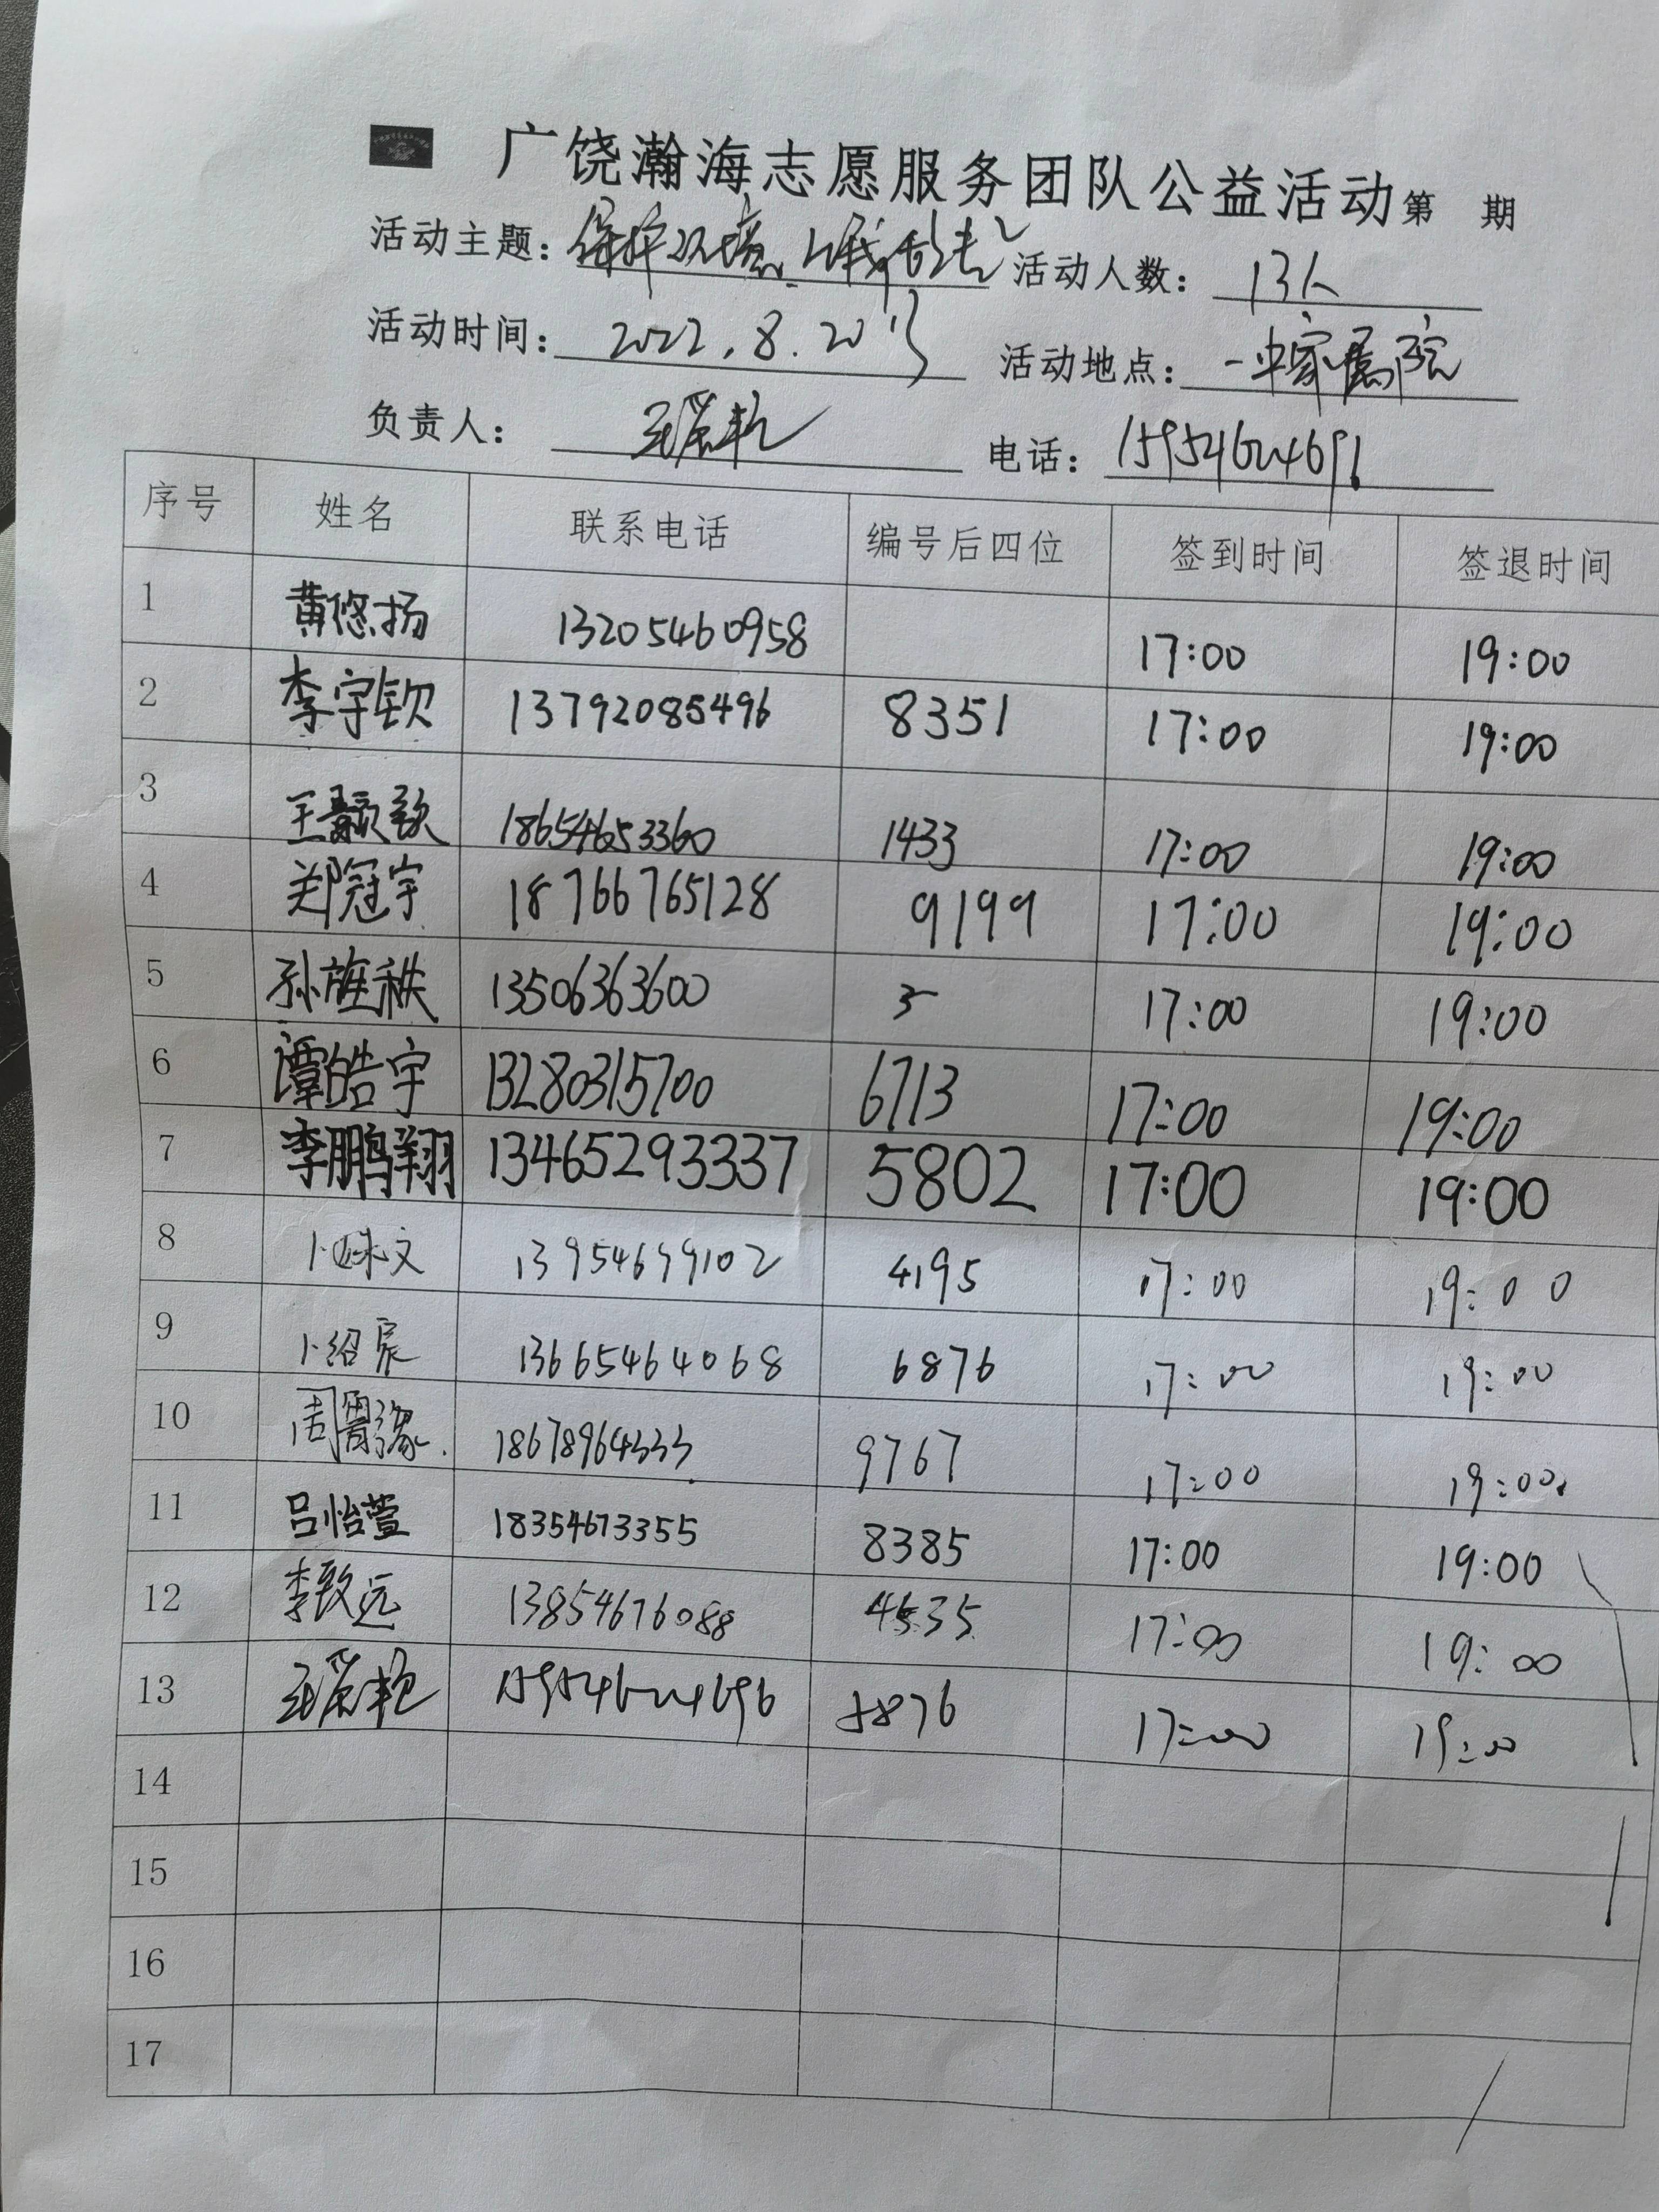 广饶瀚海志愿服务团队公益活动第 期
活动主题：保护环境、从我做起 活动人数：13人
活动时间：2022.8.20号 活动地点：一中家属院
负责人： 电话：
序号 姓名 联系电话 编号后四位 签到时间 签退时间
1 黄悠扬 13205460958 17:00 19:00
2 李宇钦 13792085496 8351 17:00 19:00
3 王颢钦 18654653360 1433 17:00 19:00
4 郑冠宇 18766765128 9199 17:00 19:00
5 孙旌秩 13506363600 17:00 19:00
6 谭皓宇 13280315700 6713 17:00 19:00
7 李鹏翔 13465293337 5802 17:00 19:00
8 13954699102 4195 17:00 19:00
9 卜绍宸 13665464068 6876 17:00 19:00
10 周霄豫 18678964333 9767 17:00 19:00
11 吕怡萱 18354673355 8385 17:00 19:00
12 李致远 13854676088 4535 17:00 19:00
13 5876 17:00 19:00
14
15
16
17